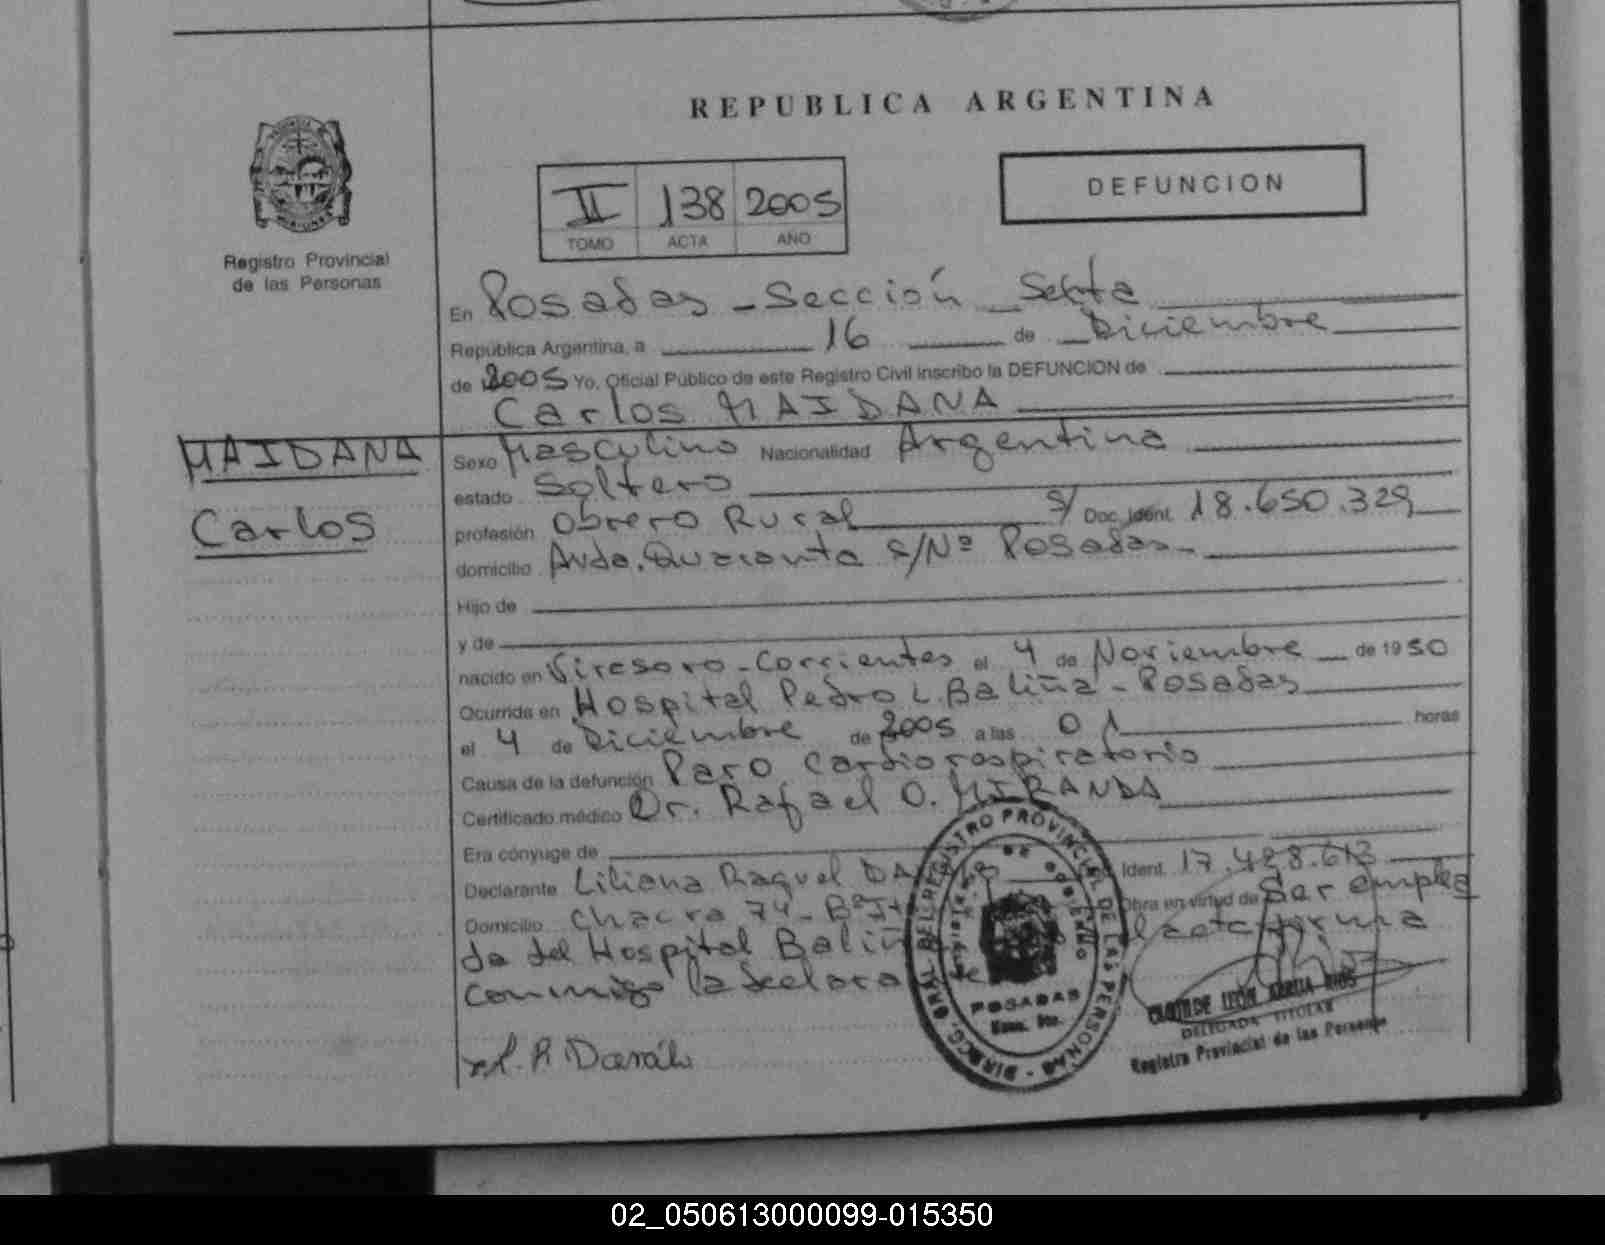 REPUBLICA ARGENTINA
DEFUNCION
II 138 2005
TOMO ACTA AÑO
Registro Provincial
de las Personas
En Posadas - Sección Sexta
República Argentina, a 16 de Diciembre
de 2005 Yo, Oficial Público de este Registro Civil inscribo la DEFUNCION de
Carlos MAIDANA
MAIDANA
Carlos
Sexo Masculino Nacionalidad Argentina
estado Soltero
profesión Obrero Rural S/ Doc. Ident. 18.650.329
domicilio Avda. Quaranta S/Nº Posadas-
Hijo de
y de
nacido en Virasoro - Corrientes el 4 de Noviembre de 1950
Ocurrida en Hospital Pedro L. Baliña - Posadas
el 4 de Diciembre de 2005 a las 01 horas
Causa de la defunción Paro Cardiorespiratorio
Certificado médico Dr. Rafael O. MIRANDA
Era cónyuge de
Declarante Liliana Raquel Ident. 17.488.613
Domicilio Chacra 74 - Obra en virtud de Ser emplea
da del Hospital Baliña
conmigo la declara
DIRECC. GRAL. DEL REGISTRO PROVINCIAL DE LAS PERSONAS
POSADAS
DELEGADA TITULAR
Registro Provincial de las Personas
02_050613000099-015350